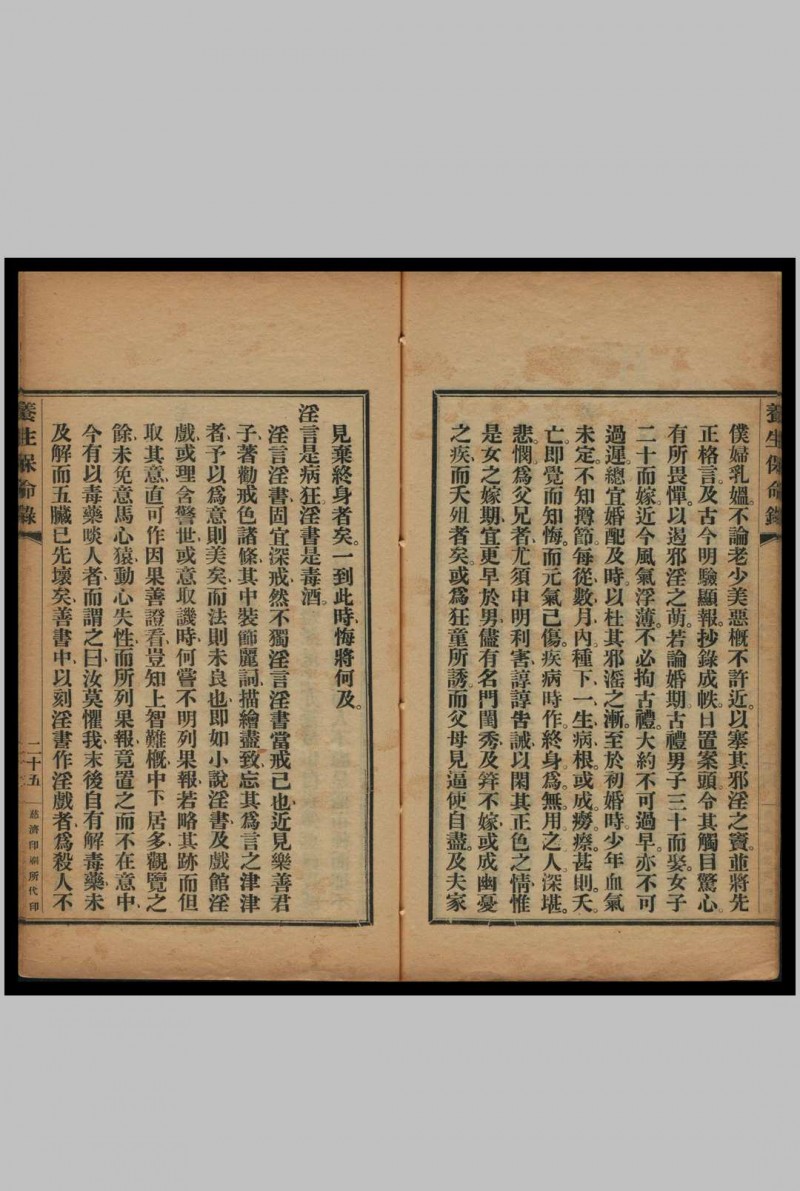 養生保命錄
僕婦乳媼。不論老少美惡概不許近。以塞其邪淫之竇。並將先
正格言。及古今明驗顯報。抄錄成帙。日置案頭。令其觸目驚心。
有所畏憚。以遏邪淫之萌。若論婚期。古禮男子三十而娶。女子
二十而嫁。近今風氣浮薄。不必拘古禮。大約不可過早。亦不可
過遲。總宜婚配及時。以杜其邪淫之漸。至於初婚時。少年血氣
未定。不知撙節。每從數月內種下一生病根。或成癆瘵。甚則夭
亡。即覺而知悔。而元氣已傷。疾病時作。終身為無用之人。深堪
悲憫。為父兄者。尤須申明利害。諄諄告誡。以閑其正色之情。惟
是女之嫁期。宜更早於男。儘有名門閨秀。及笄不嫁。或成幽憂
之疾。而夭殂者矣。或為狂童所誘。而父母見逼使自盡。及夫家
見棄終身者矣。一到此時。悔將何及。
淫言是病狂淫書是毒酒
淫言淫書。固宜深戒。然不獨淫言淫書當戒已也。近見樂善君
子。著勸戒色諸條。其中裝飾麗詞。描繪盡致。忘其為言之津津
者。予以為意則美矣。而法則未良也。即如小說淫書。及戲館淫
戲。或理含警世。或意取譏時。何嘗不明列果報。若略其跡而但
取其意。直可作因果善證看。豈知上智難概。中下居多。觀覽之
餘。未免意馬心猿。動心失性。而所列果報。竟置之而不在意中。
今有以毒藥啖人者。而謂之曰。汝莫懼。我末後自有解毒藥。未
及解而五臟已先壞矣。善書中。以刻淫書作淫戲者。為殺人不
養生保命錄
二十五
慈濟印刷所代印